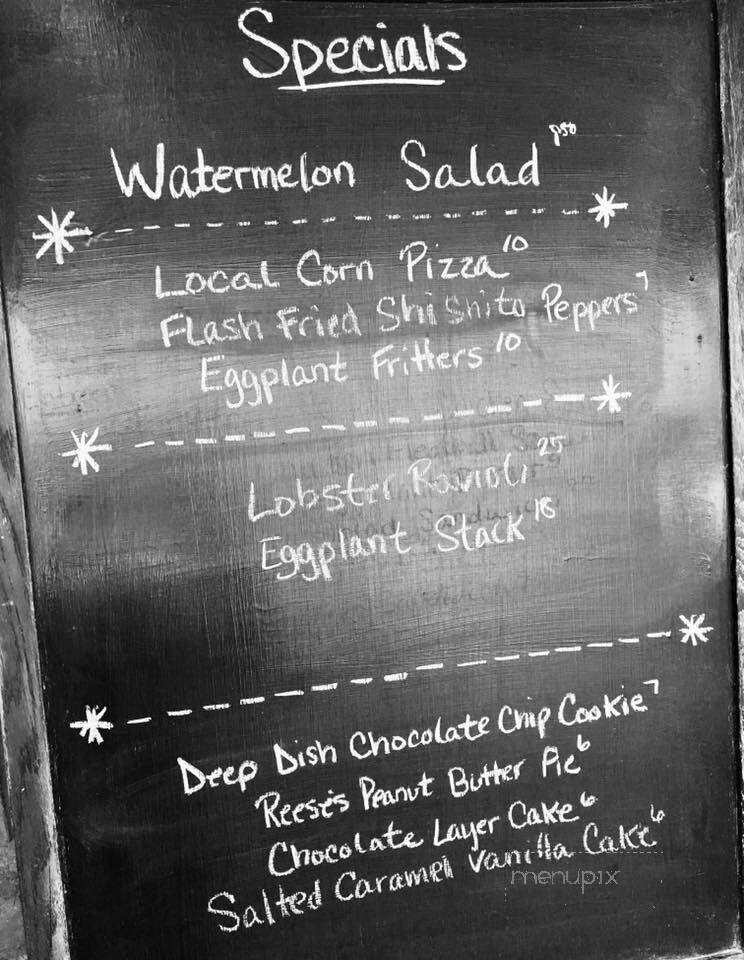 Specials
Watermelon Salad
Local Corn Pizza 10
Flash Fried Shishito Peppers 7
Eggplant Fritters 10
Lobster Ravioli 25
Eggplant Stack 18
Deep Dish Chocolate Chip Cookie 7
Reese's Peanut Butter Pie 6
Chocolate Layer Cake 6
Salted Caramel Vanilla Cake 6
menupix